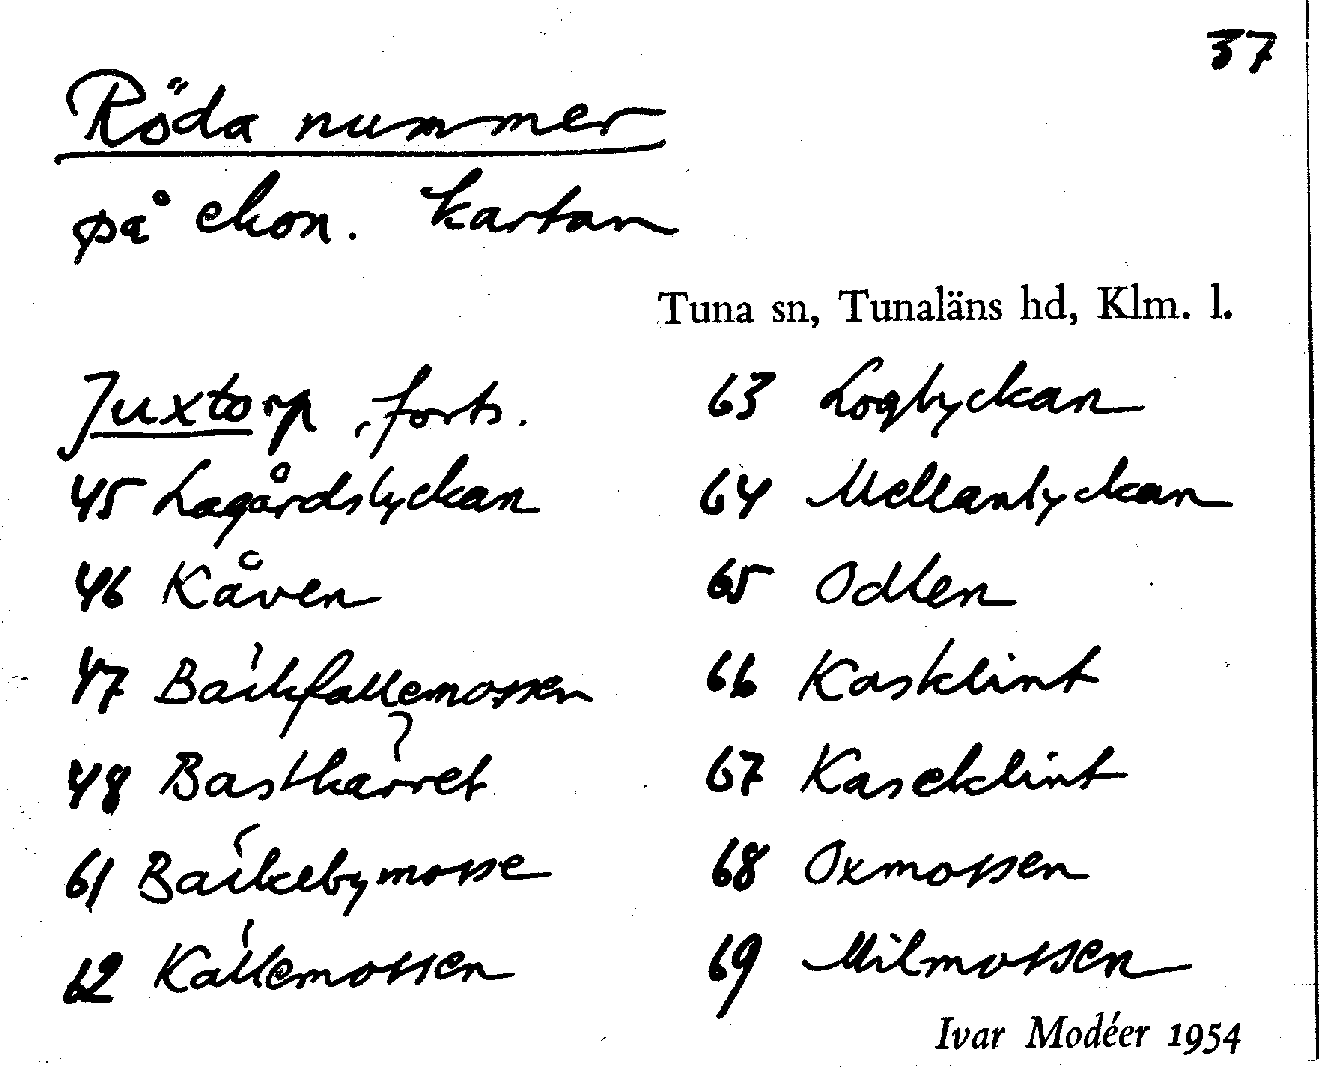 37
Röda nummer
på ekon. kartan
Tuna sn, Tunaläns hd, Klm. l.
Juxtorp, forts.
45 Lagårdslyckan
46 Kåven
47 Bäckfallemossen
48 Bastkärret
61 Bäckebymosse
62 Källemossen
63 Loglyckan
64 Mellanlyckan
65 Odlen
66 Kasklint
67 Kaseklint
68 Oxmossen
69 Milmossen
Ivar Modéer 1954